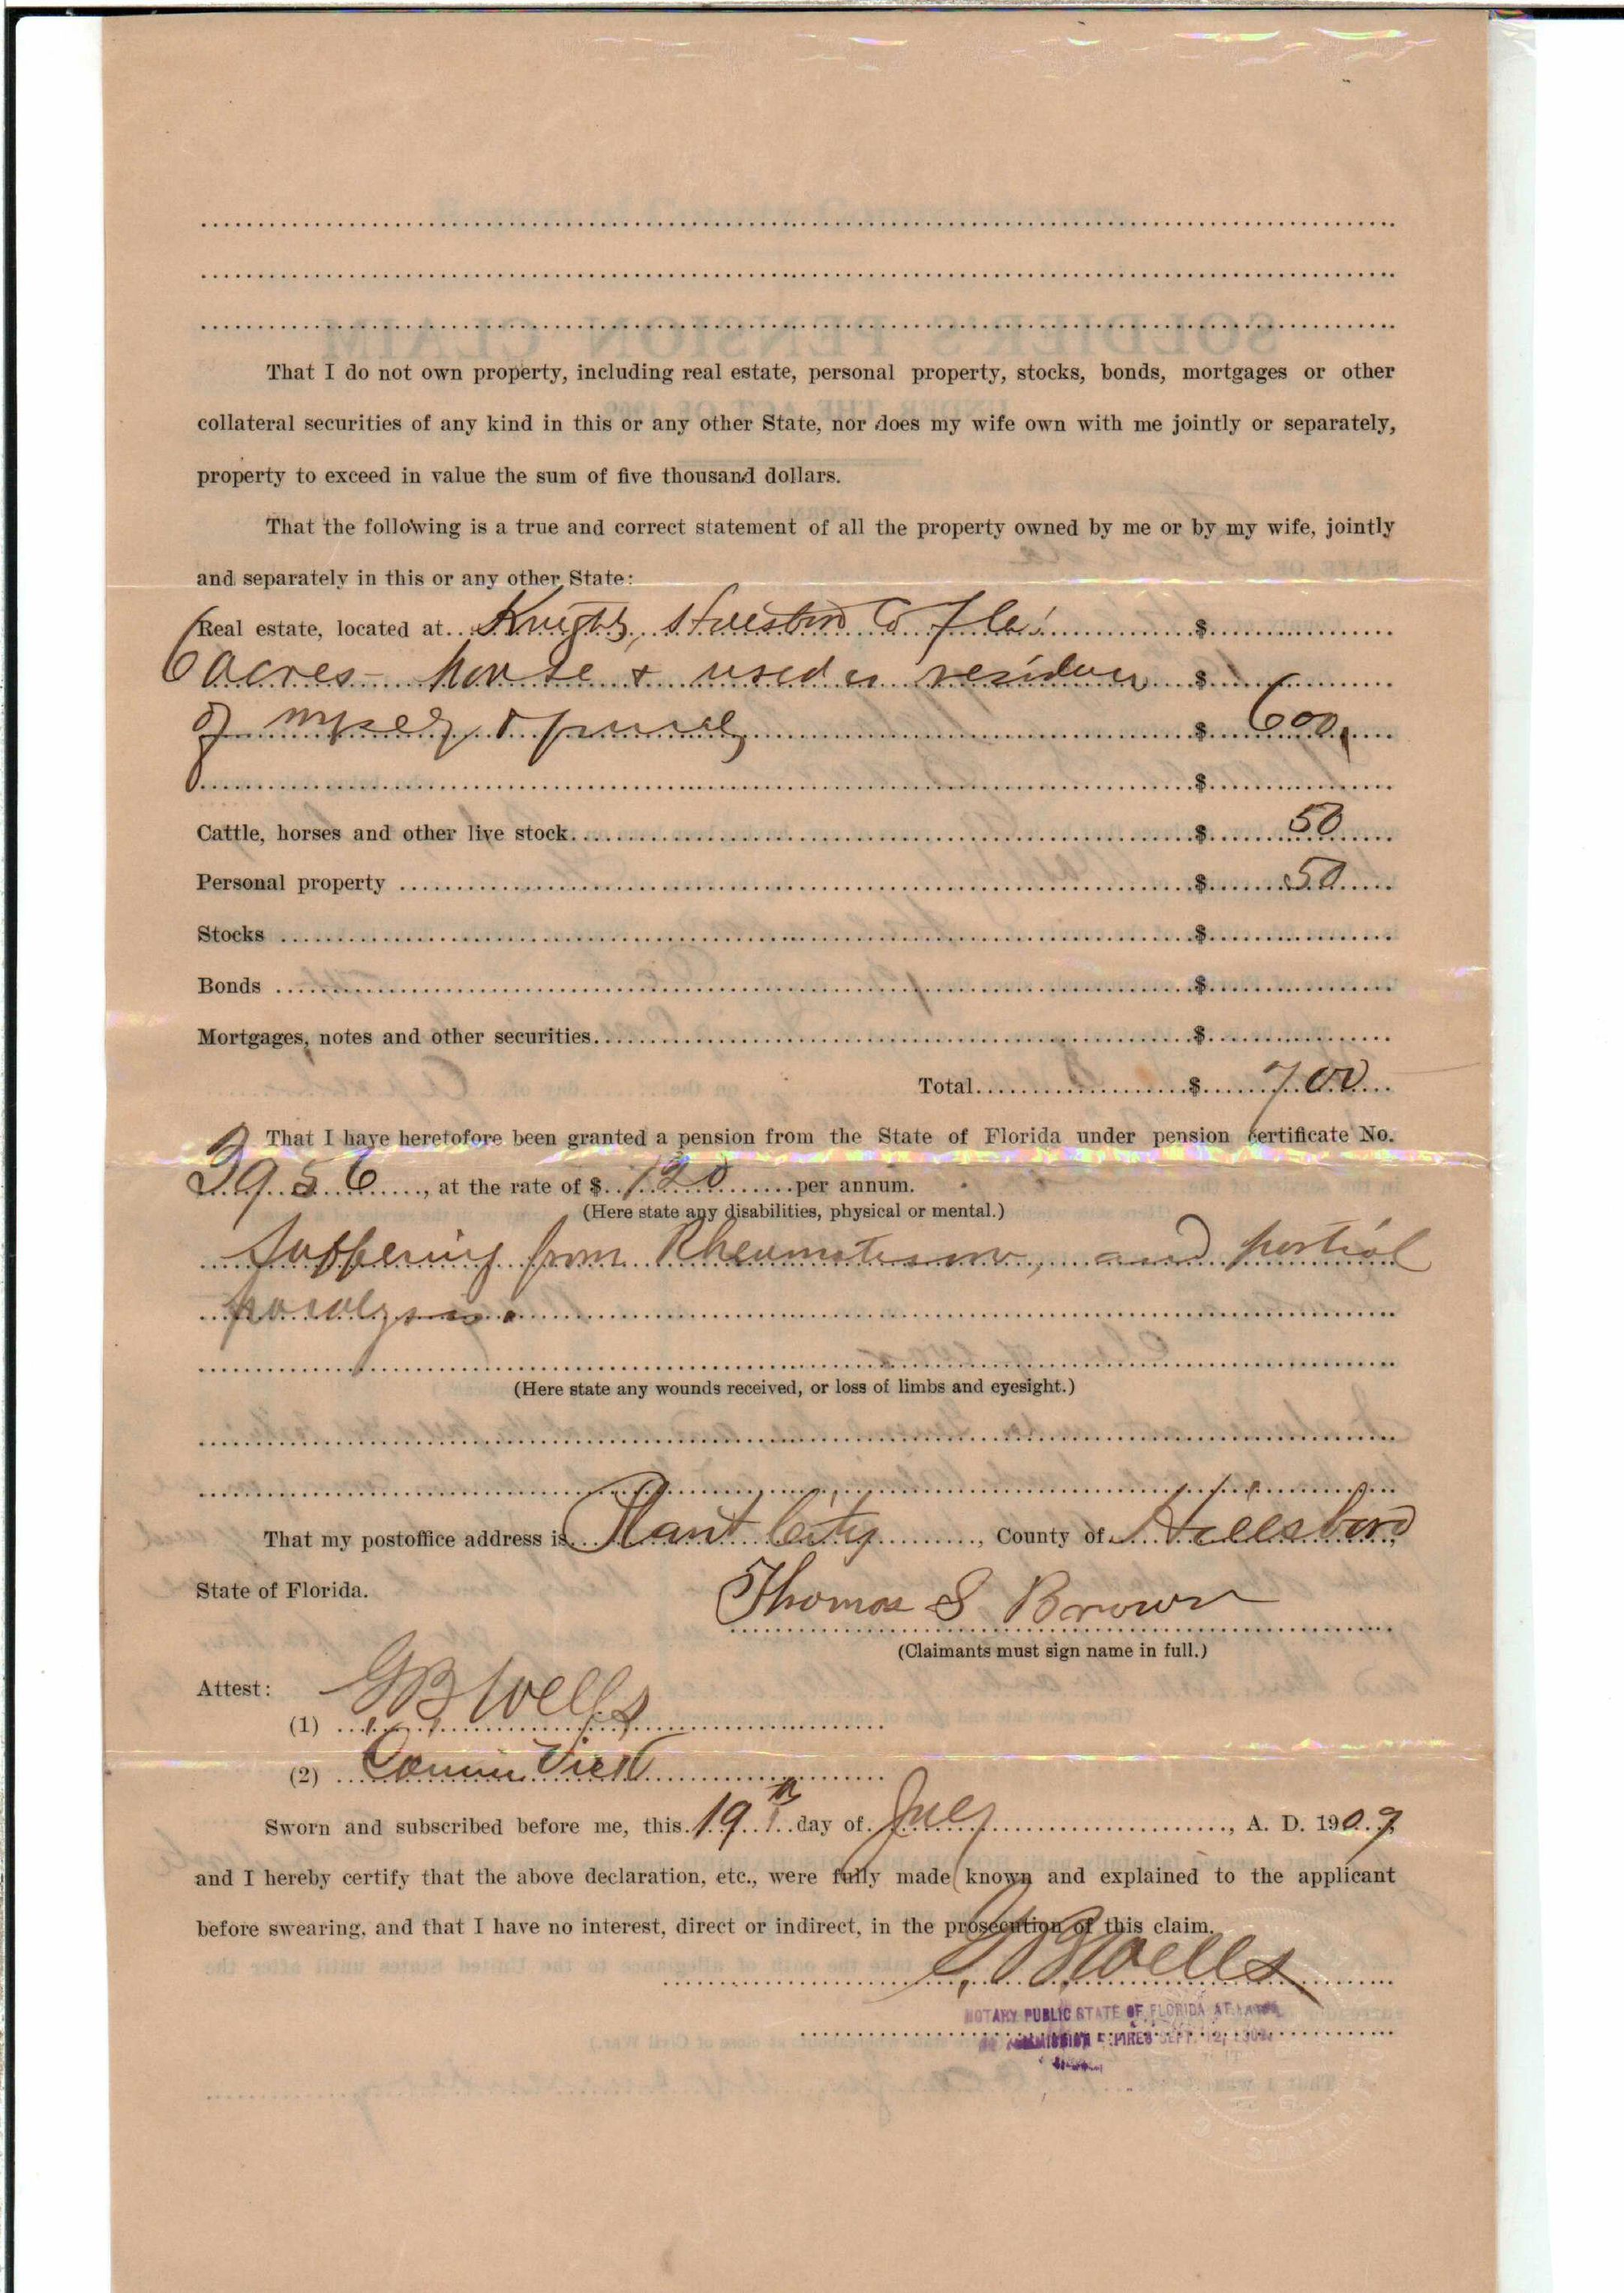 That I do not own property, including real estate, personal property, stocks, bonds, mortgages or other
collateral securities of any kind in this or any other State, nor does my wife own with me jointly or separately,
property to exceed in value the sum of five thousand dollars.
That the following is a true and correct statement of all the property owned by me or by my wife, jointly
and separately in this or any other State:
Real estate, located at Knights, Co Fla. $
6 acres - house & used as $
of myself & family $ 600
$
Cattle, horses and other live stock $ 50
Personal property $ 50
Stocks $
Bonds $
Mortgages, notes and other securities $
Total $ 700
That I have heretofore been granted a pension from the State of Florida under pension certificate No.
3956, at the rate of $ 120 per annum.
(Here state any disabilities, physical or mental.)
Suffering from Rheumatism, and partial
paralysis.
(Here state any wounds received, or loss of limbs and eyesight.)
That my postoffice address is Plant City, County of Hillsboro
State of Florida.
Thomas S Brown
(Claimants must sign name in full.)
Attest:
(1) GB Wells
(2)
Sworn and subscribed before me, this 19th day of July, A. D. 1909,
and I hereby certify that the above declaration, etc., were fully made known and explained to the applicant
before swearing, and that I have no interest, direct or indirect, in the prosecution of this claim.
GB Wells
NOTARY PUBLIC STATE OF FLORIDA AT LARGE
COMMISSION EXPIRES SEPT. 12,